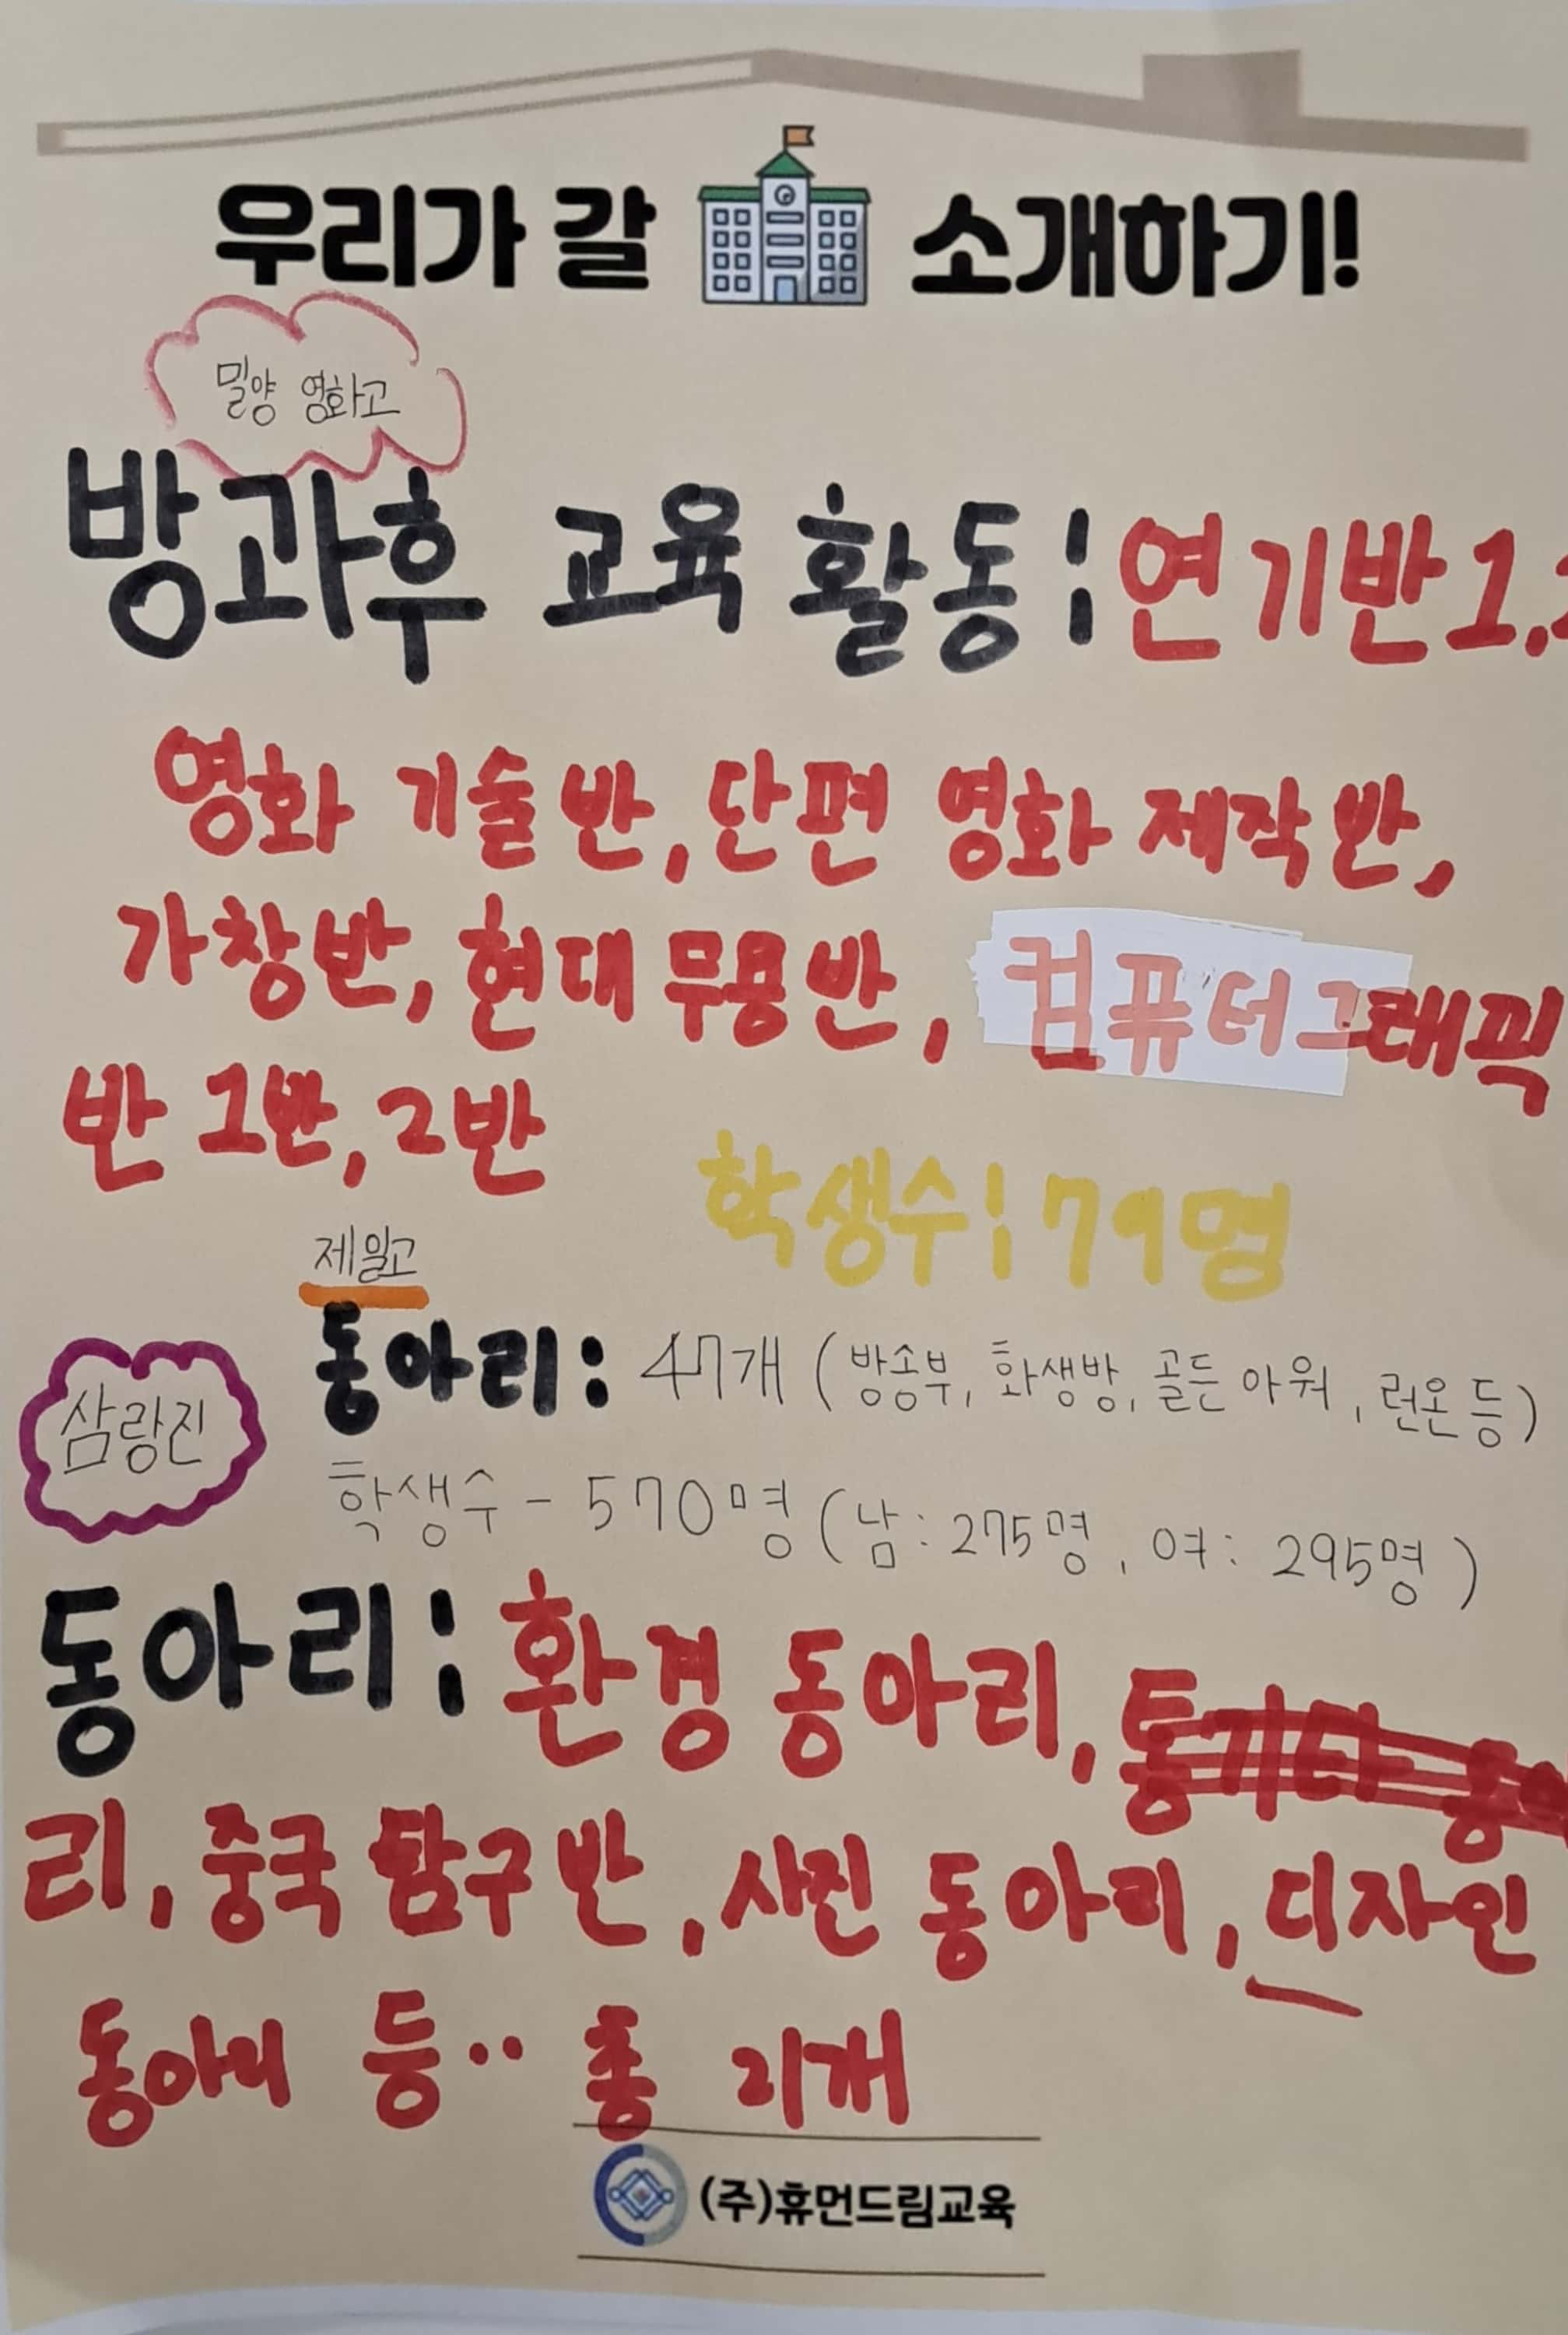 우리가 갈 소개하기!
밀양 영화고
방과후 교육 활동: 연기반 1,
영화 기술반, 단편 영화 제작반,
가창반, 현대 무용반, 컴퓨터그래픽
반 1반, 2반
학생수: 79명
제일고
동아리: 47개 (방송부, 화생방, 골든아워, 런온 등)
삼랑진
학생수 - 570명 (남: 275명, 여: 295명)
동아리: 환경 동아리,
리, 중국 탐구반, 사진 동아리, 디자인
동아리 등.. 총 개
(주)휴먼드림교육